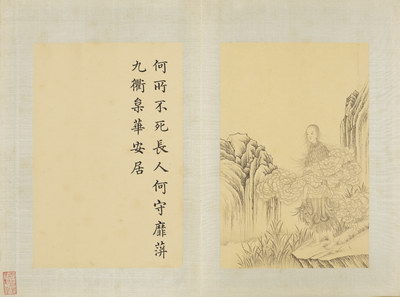 何所不死長人何守靡蓱
九衢枲華安居